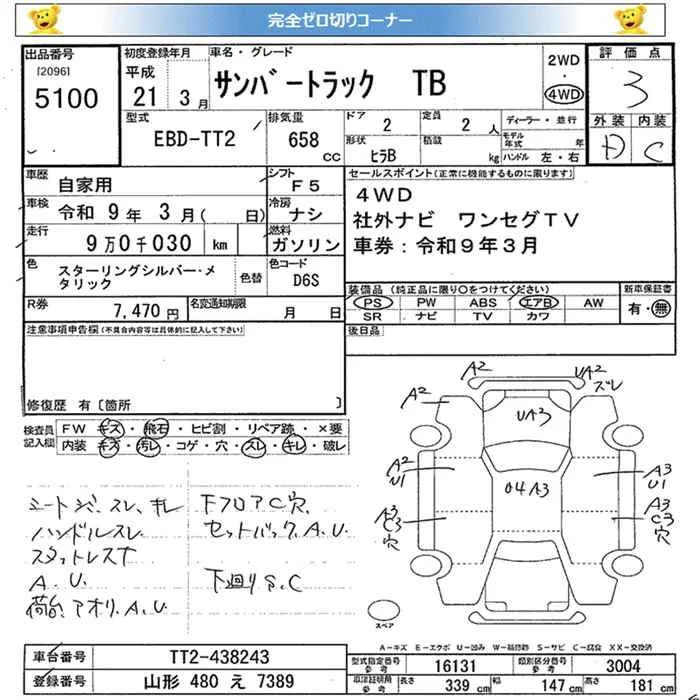 完全ゼロ切りコーナー
出品番号
[20961]
5100
初度登録年月
平成
21 3月
車名・グレード
サンバートラック TB
2WD
・
4WD
評価点
3
型式
EBD-TT2
排気量
658
CC
ドア
2
定員
2 人
ディーラー・並行
形状
ヒラB
積載
kg
モデル年式 年
ハンドル 左・右
外装 内装
D C
車歴
自家用
シフト
F5
セールスポイント(正常に機能するものに限ります)
4WD
社外ナビ ワンセグTV
車券:令和9年3月
車検
令和 9年 3月( 日)
冷房
ナシ
走行
9万0千030 km
燃料
ガソリン
色
スターリングシルバー・メタリック
色替
色コード
D6S
R券
7,470 円
名変通知期限
月 日
装備品(純正品に限り○をつけてください)
PS PW ABS エアB AW
SR ナビ TV カワ
新車保証書
有・無
注意事項申告欄(不具合内容等は具体的に記入して下さい)
後日品
修復歴 有〔箇所 〕
検査員記入欄
FW キズ・飛石・ヒビ割・リペア跡・×要
内装 キズ・汚レ・コゲ・穴・スレ・キレ・破レ
ハンドルスレ
A.U.
下フロアC穴、
セットバック、A.U.
下廻りS.C
A2
A2
UA2
ズレ
UA3
A2
U1
A3
U1
04A3
A3
C3
穴
A3
C3
穴
スペア
A-キズ E-エクボ U-凹み W-補修跡 S-サビ C-腐食 XX-交換済
車台番号
TT2-438243
型式指定番号
参考
16131
類別区分番号
参考
3004
登録番号
山形 480 え 7389
車庫証明用
参考
長さ
339 cm
幅
147 cm
高さ
181 cm